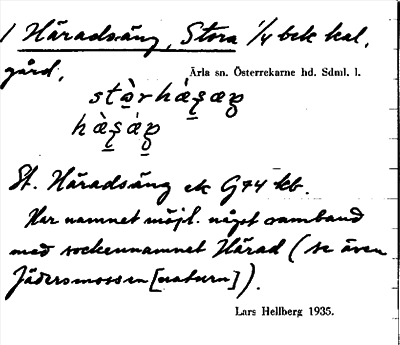 / Häradsäng, Stora 1/4 bek kal.
gård,
Ärla sn. Österrekarne hd. Sdml. l.
St. Häradsäng ek G74 kb.
Har namnet möjl. något samband
med sockennamnet Härad (se även
Jädersmossen [naturn]).
Lars Hellberg 1935.